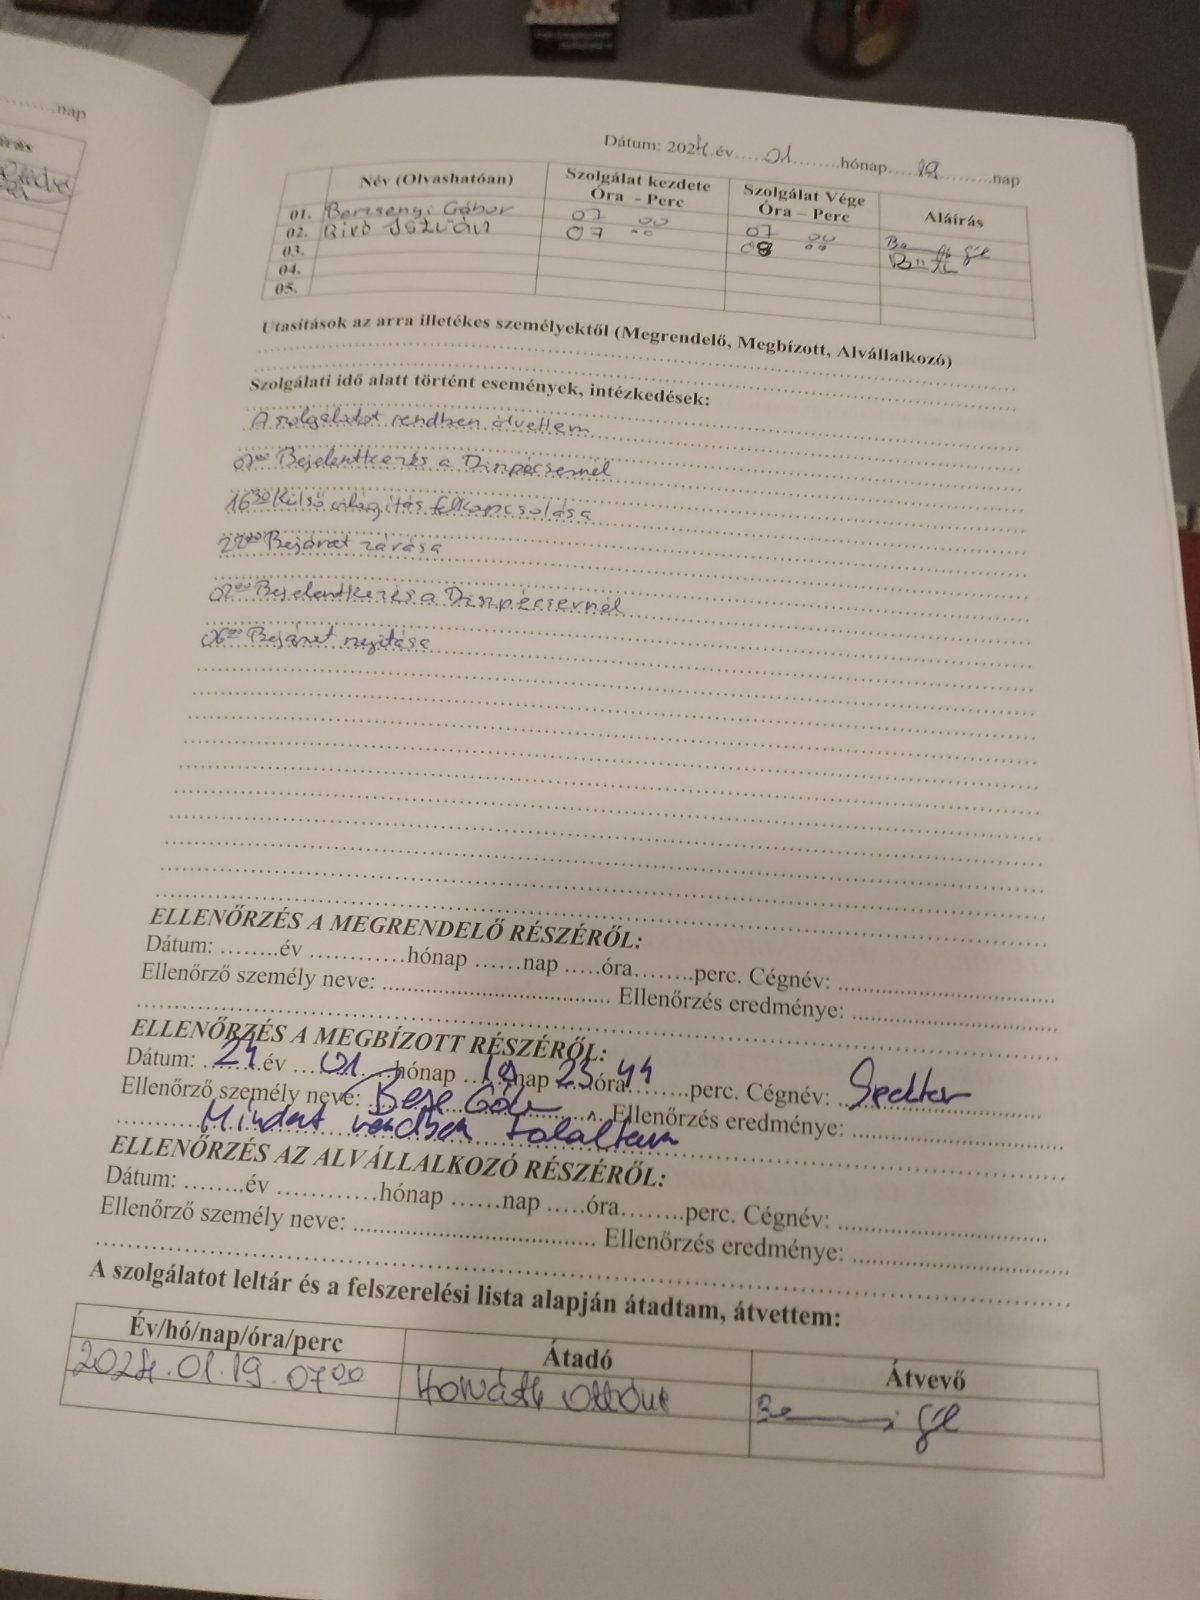 nap
Dátum: 2024.év.....01........hónap....19..........nap
Név (Olvashatóan)
Szolgálat kezdete
Óra - Perc
Szolgálat Vége
Óra – Perc
Aláírás
01. Bercsényi Gábor 07 00 07 00
02. Biró István 07 00 08 00
03.
04.
05.
Utasítások az arra illetékes személyektől (Megrendelő, Megbízott, Alvállalkozó)
Szolgálati idő alatt történt események, intézkedések:
A szolgálatot rendben átvettem
07 00 Bejelentkezés a Diszpécsernél
16 30 Külső világítás felkapcsolása
22 00 Bejárat zárása
Bejelentkezés a Diszpécsernél
06 00 Bejárat nyitása
ELLENŐRZÉS A MEGRENDELŐ RÉSZÉRŐL:
Dátum: ........év ............hónap ......nap .....óra........perc. Cégnév: ..............................
Ellenőrző személy neve: ...................................... Ellenőrzés eredménye: ..............................
ELLENŐRZÉS A MEGBÍZOTT RÉSZÉRŐL:
Dátum: 24 év 01 hónap 19 nap 23 óra 44 perc. Cégnév:
Ellenőrző személy neve: Ellenőrzés eredménye: ..............................
Mindent rendben találtam
ELLENŐRZÉS AZ ALVÁLLALKOZÓ RÉSZÉRŐL:
Dátum: ........év ............hónap ......nap .....óra........perc. Cégnév: ..............................
Ellenőrző személy neve: ...................................... Ellenőrzés eredménye: ..............................
A szolgálatot leltár és a felszerelési lista alapján átadtam, átvettem:
Év/hó/nap/óra/perc Átadó Átvevő
2024.01.19 07 00 Horváth